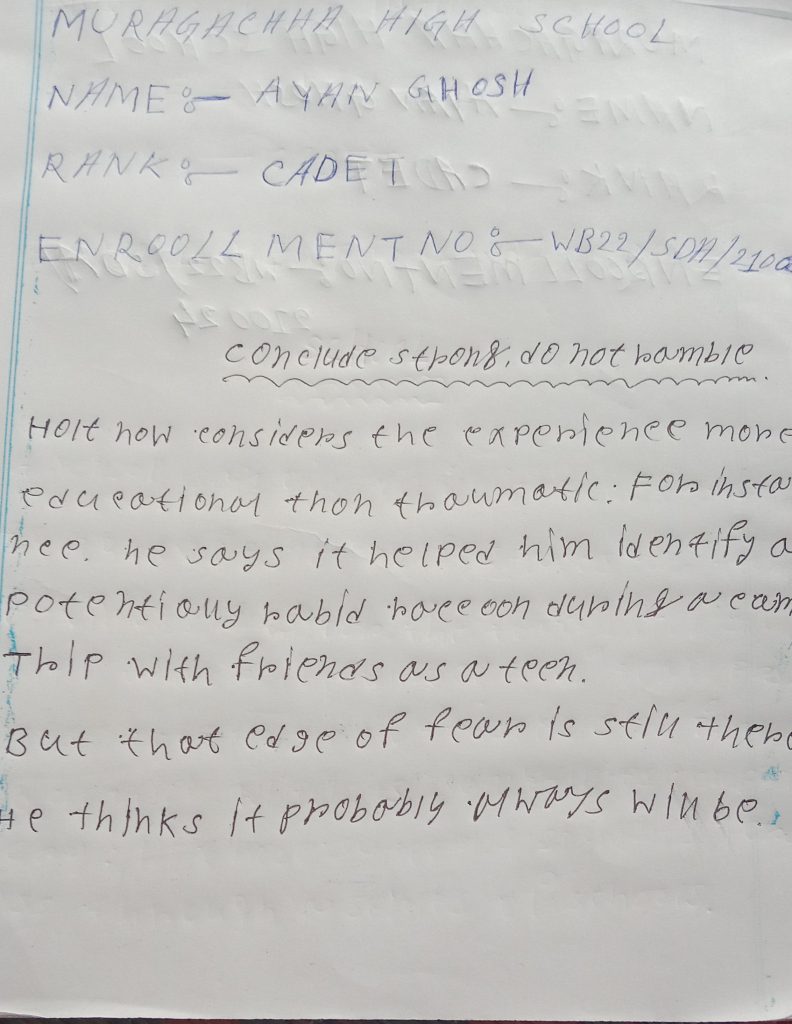 MURAGACHHA HIGH SCHOOL
NAME :- AYAN GHOSH
RANK :- CADET
ENROOLL MENT NO :- WB22/SDA/210
conclude strong, do not ramble.
Holt now considers the experience more
educational than traumatic: For insta
nce. he says it helped him identify a
potentially rabid raccoon during a cam
Trip with friends as a teen.
But that edge of fear is still there
He thinks it probably always will be.